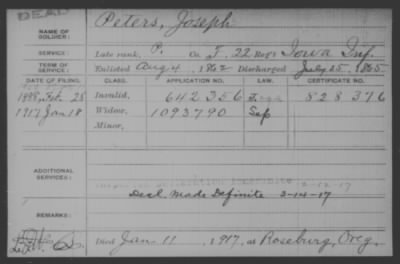 DEAD
NAME OF SOLDIER: Peters, Joseph
SERVICE: Late rank, P. Co. I, 22 Reg't Iowa Inf.
TERM OF SERVICE: Enlisted Aug 4, 1862 Discharged July 25, 1865.
DATE OF FILING. CLASS. APPLICATION NO. LAW. CERTIFICATE NO.
Feb. 28 Invalid, 642356 828376
1917 Jan 18 Widow, 1093790
Minor,
ADDITIONAL SERVICES:
2-12-17
Decl. Made Definite 2-14-17
REMARKS:
Died Jan. 11, 1917, at Roseburg, Oreg.